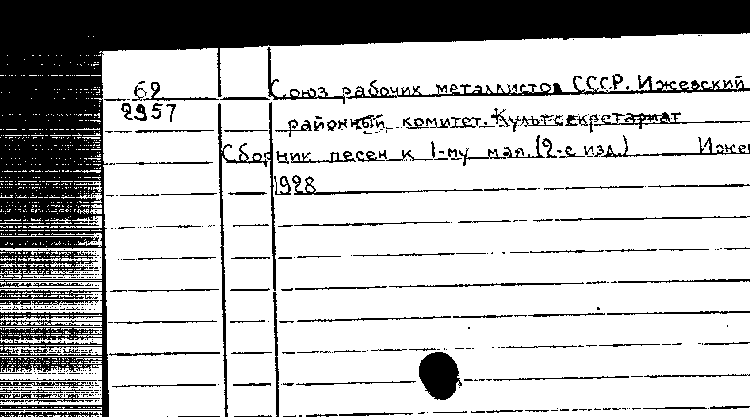 62 Союз рабочих металлистов СССР. Ижевский
2957 районный комитет. Культсекретариат
Сборник песен к 1-му мая. (2-е изд.) Ижев
1928